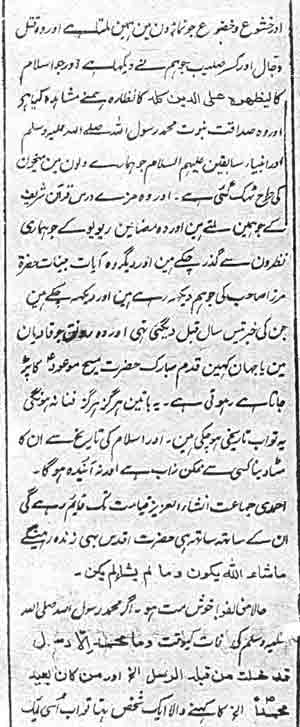 اور خشوع و خضوع جو نمازون مین ہمین ملتا ہے اور وہ قتل
دجال اور کسر صلیب جو ہم نے دیکھا ہے اور جو اسلام
کا لیظھرہ علی الدین کلہ کا نظارہ ہمنے مشاہدہ کیا ہے
اور وہ صداقت نبوت محمد رسول اللہ صلے اللہ علیہ وسلم
اور انبیاء سابقین علیہم السلام جو ہمارے دلون مین
کی طرح گئی ہے۔ اور وہ مزے درس قرآن شریف
کے جو ہمین آتے ہین اور وہ مضامین ریویو کے جو ہماری
نظرون سے گذر چکے ہین اور دیگر وہ آیات بینات حضرۃ
مرزا صاحب کی جو ہم دیکھ رہے ہین اور دیکھ چکے ہین
جن کی خبر تیس سال قبل دیگئی تہی اور وہ رونق جو قادیان
مین یا جہان کہین قدم مبارک حضرت مسیح موعود ؑ کا پڑ
جاتا ہے ہوتی ہے۔ یہ باتین ہرگز ہرگز فنا نہ ہونگی
یہ تو اب تاریخی ہو چکی ہین۔ اور اسلام کی تاریخ سے ان کا
مٹا دینا کسی سے ممکن نہ اب ہے اور نہ آئیندہ ہوگا۔
احمدی جماعت انشاء العزیز قیامت تک قائم رہے گی
ان کے ساتھ ساتھ ہی حضرت اقدس بہی زندہ رہینگے
ماشاء اللہ یکون وما لم یشاء لم یکن۔
خوش مت ہو۔ اگر محمد رسول اللہ صلی اللہ
علیہ وسلم کی وفات کیوقت وما محمد الا رسول
قد خلت من قبلہ الرسل الخ اور من کان یعبد
محمداً الخ کا کہنے والا ایک شخص تہا تو اب